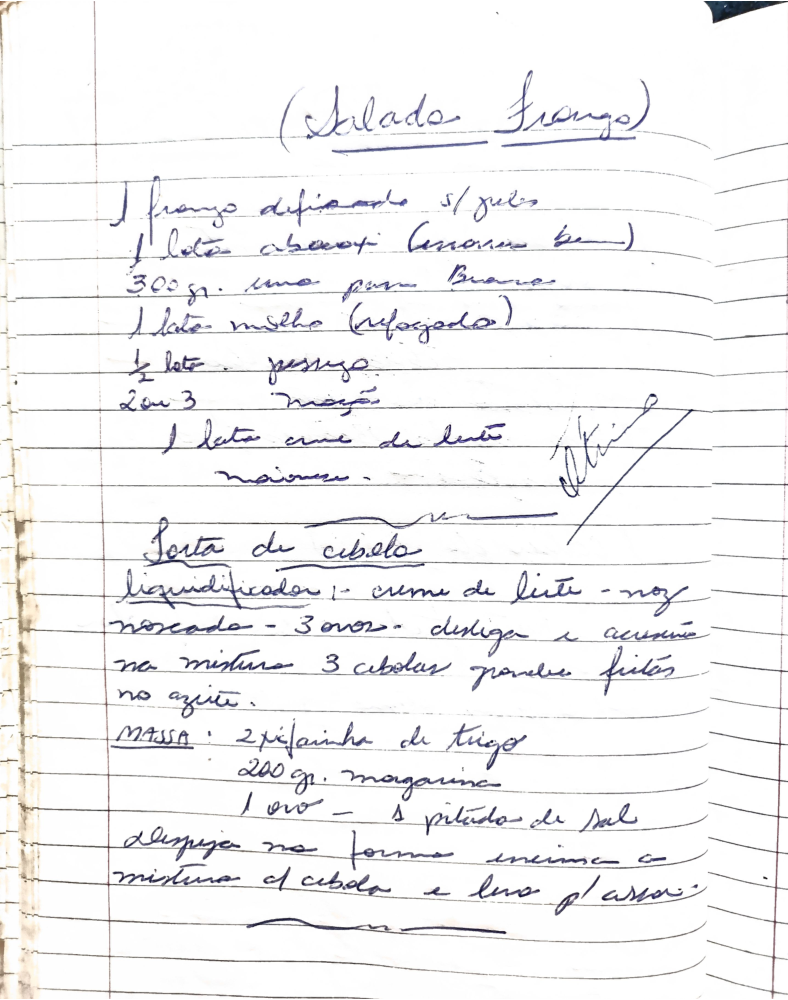 (Salada Frango)
1 frango desfiado s/ peles
1 lata abacaxi (escorrer bem)
300 gr. uva passa Branca
1 lata milho (refogado)
½ lata. pessego
2 ou 3 maçã
1 lata creme de leite
maionese.
Torta de cebola
liquidificador :- creme de leite - noz
noscada - 3 ovos - desliga e acrescenta
na mistura 3 cebolas grandes fritas
no azeite.
MASSA : 2 xic/farinha de trigo
200 gr. magarina
1 ovo - 1 pitada de sal
Despeja na forma encima a
mistura d/ cebola e leva p/ assar.